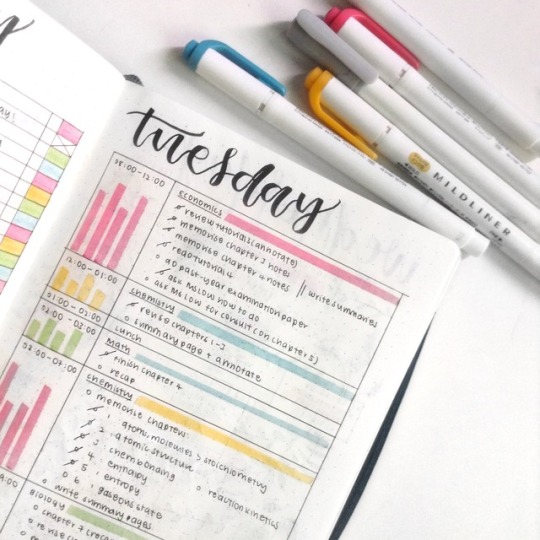 y
ay!
tuesday
08:00-12:00
Economics
review tutorials (annotate)
memorise chapter 3 notes
memorise chapter 4 notes
read tutorial 4
write summaries
do past-year examination paper
ask Ms Low how to do
ask Ms Low for consult (on chapter 5)
12:00-01:00
Chemistry
revise chapters 1-3
summary page + annotate
01:00-02:00
Lunch
02:00-03:00
Math
finish chapter 4
recap
Chemistry
memorise chapters:
1. atoms, molecules & stoichiometry
2. atomic structure
3. chem bonding
4. enthalpy
5. entropy
6. gaseous state
reaction kinetics
write summary pages
9:00
Biology
chapter 7
MILDLINER